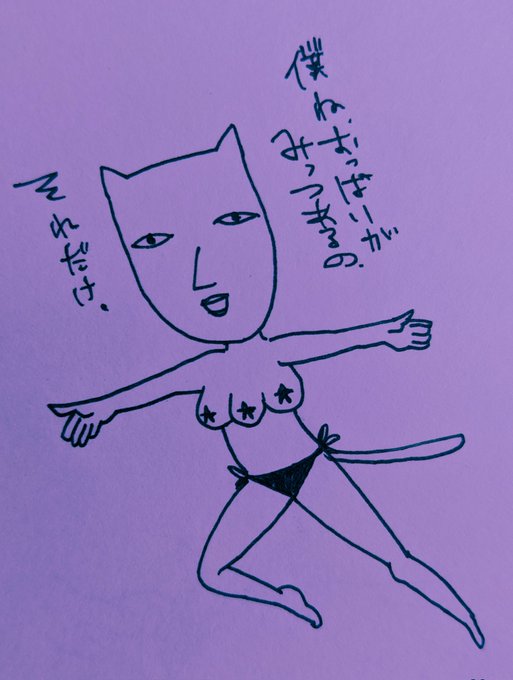 僕ね、おっぱいが
みっつあるの。
それだけ。